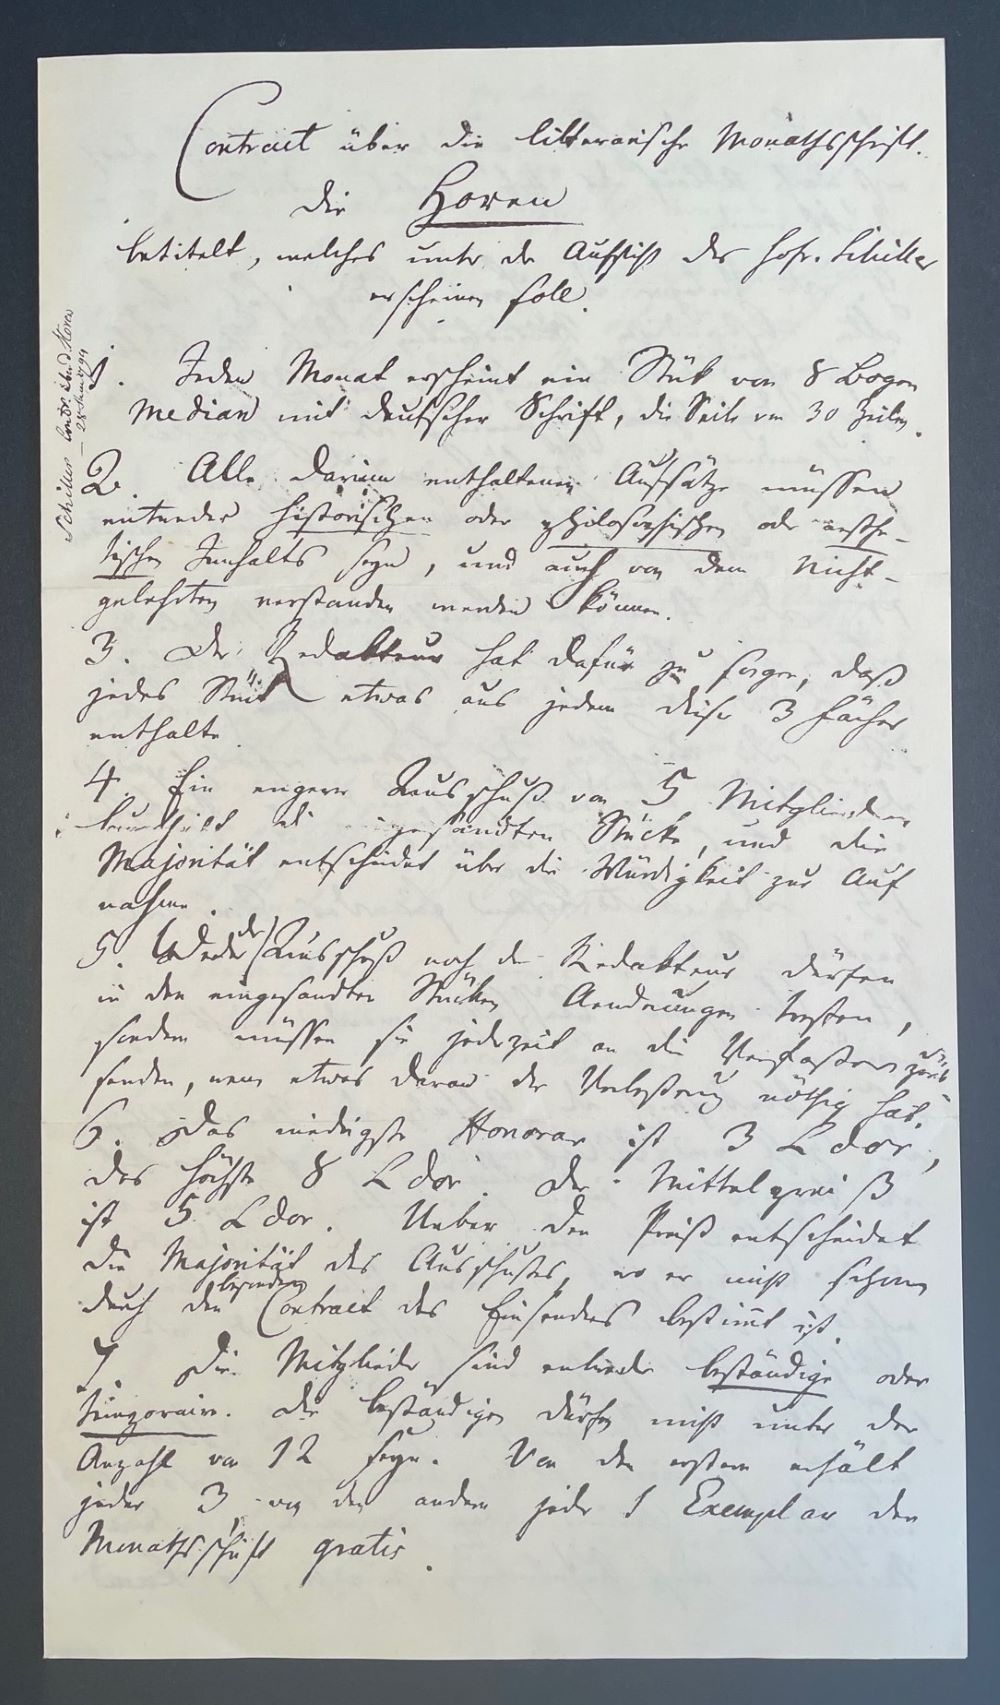 Contract über die litterarische Monathsschrift.
die Horen
betitelt, welches unter der Aufsicht des Hofr. Schiller
erscheinen soll.
1. Jeden Monat erscheint ein Stük von 8 Bogen
Median mit deutscher Schrift, die Seite von 30 Zeilen.
2. Alle darinn enthaltenen Aufsätze müssen
entweder historischen oder philosophischen oder aesthe-
tischen Innhalts seyn, und auch von dem Nicht-
gelehrten verstanden werden können.
3. Der Redakteur hat dafür zu sorgen, daß
jedes Stük etwas aus jedem dieser 3 Fächer
enthalte
4. Ein engerer Ausschuß von 5 Mitgliedern
beurtheilt die eingesandten Stücke, und die
Majorität entscheidet über die Würdigkeit zur Auf
nahme.
5. Weder der Ausschuß noch der Redakteur dürfen
in den eingesandten Stücken Aenderungen treffen,
sondern müssen sie jederzeit an die Verfaßer zurük
senden, wenn etwas daran der Verbeßerung nöthig hat.
6. Das niedrigste Honorar ist 3 Ldor,
das höchste 8 Ldor. Der Mittelpreiß
ist 5 Ldor. Ueber den Preiß entscheidet
die Majorität des Ausschußes, wo er nicht schon
durch den besondern Contract des Einsenders bestimmt ist.
7 Die Mitglieder sind entweder beständige oder
temporaire. Die beständigen dürfen nicht unter der
Anzahl von 12 seyn. Von den erstern erhält
jeder 3 von den andern jeder 1 Exemplar der
Monathsschrift gratis.
Schiller Contr. üb. d. Horen
28 Juni 1794